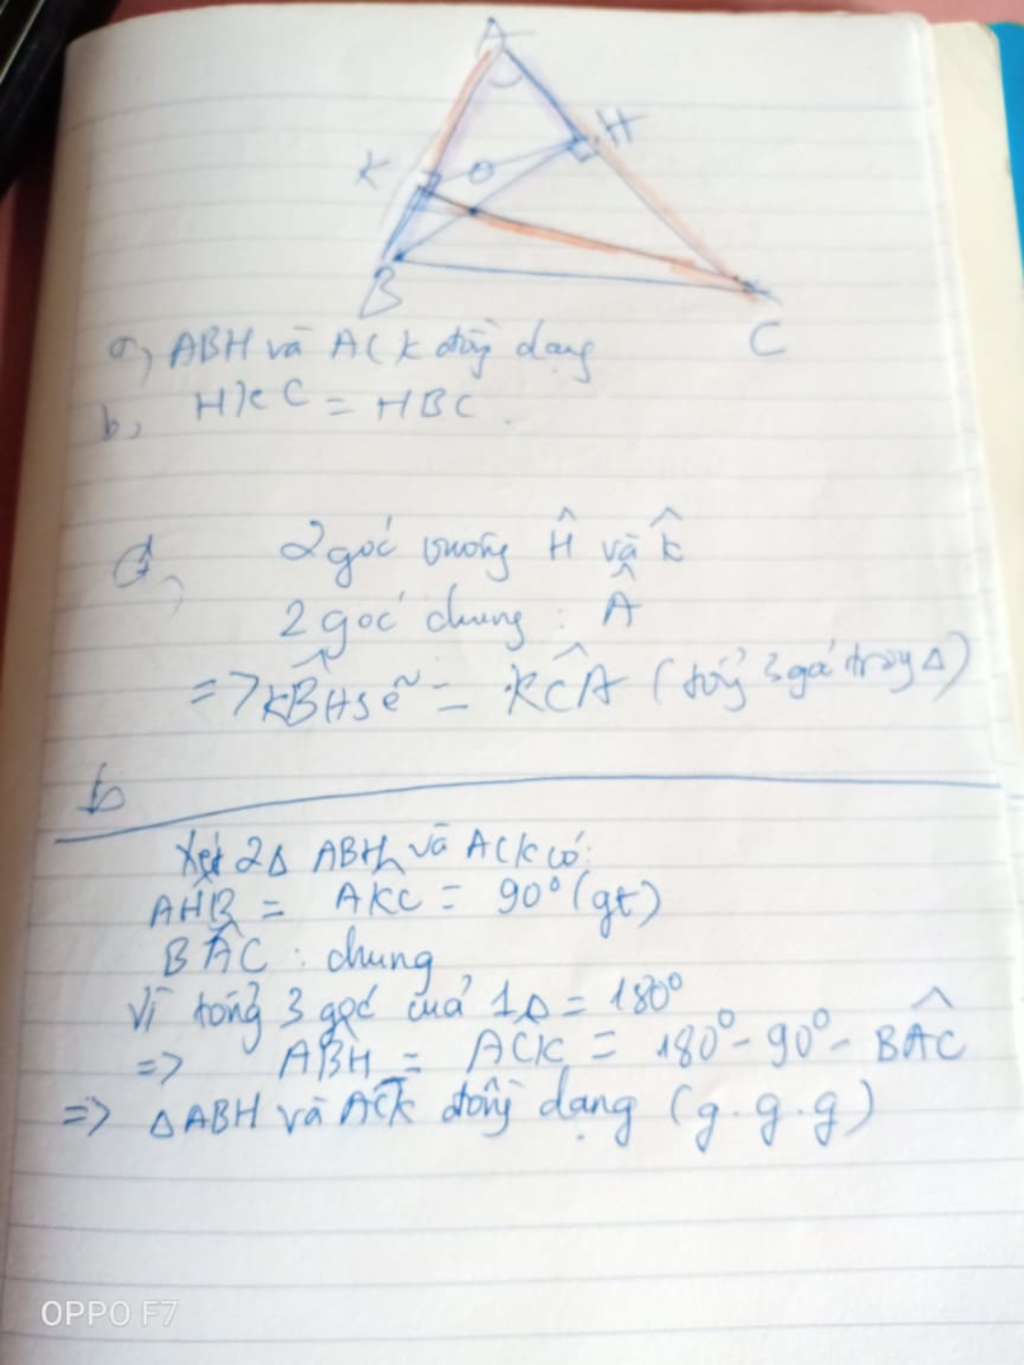 A
H
K
O
B
C
a, ABH và ACK đồng dạng
b, HKC = HBC
a, 2 góc vuông Ĥ và K̂
2 góc chung : Â
=> KB̂H sẽ = KĈA (tổng 3 góc trong Δ)
b
Xét 2Δ ABH và ACK có:
AĤB = AKC = 90° (gt)
BÂC : chung
Vì tổng 3 góc của 1Δ = 180°
=> AB̂H = ACK = 180° - 90° - BÂC
=> ΔABH và ACK đồng dạng (g.g.g)
OPPO F7